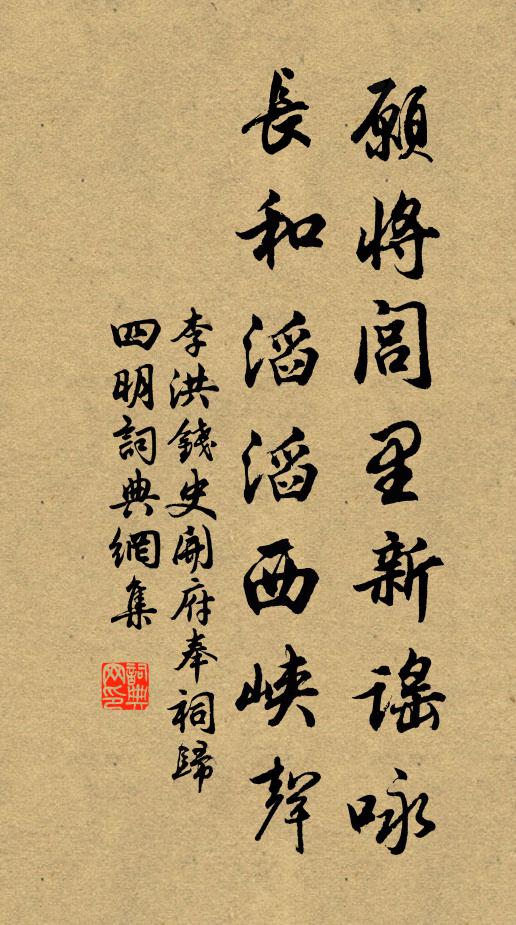 願將閭里新謠咏
長和滔滔西峽聲
李洪錢史開府奉祠歸
四明詞典網集
詞典
网印